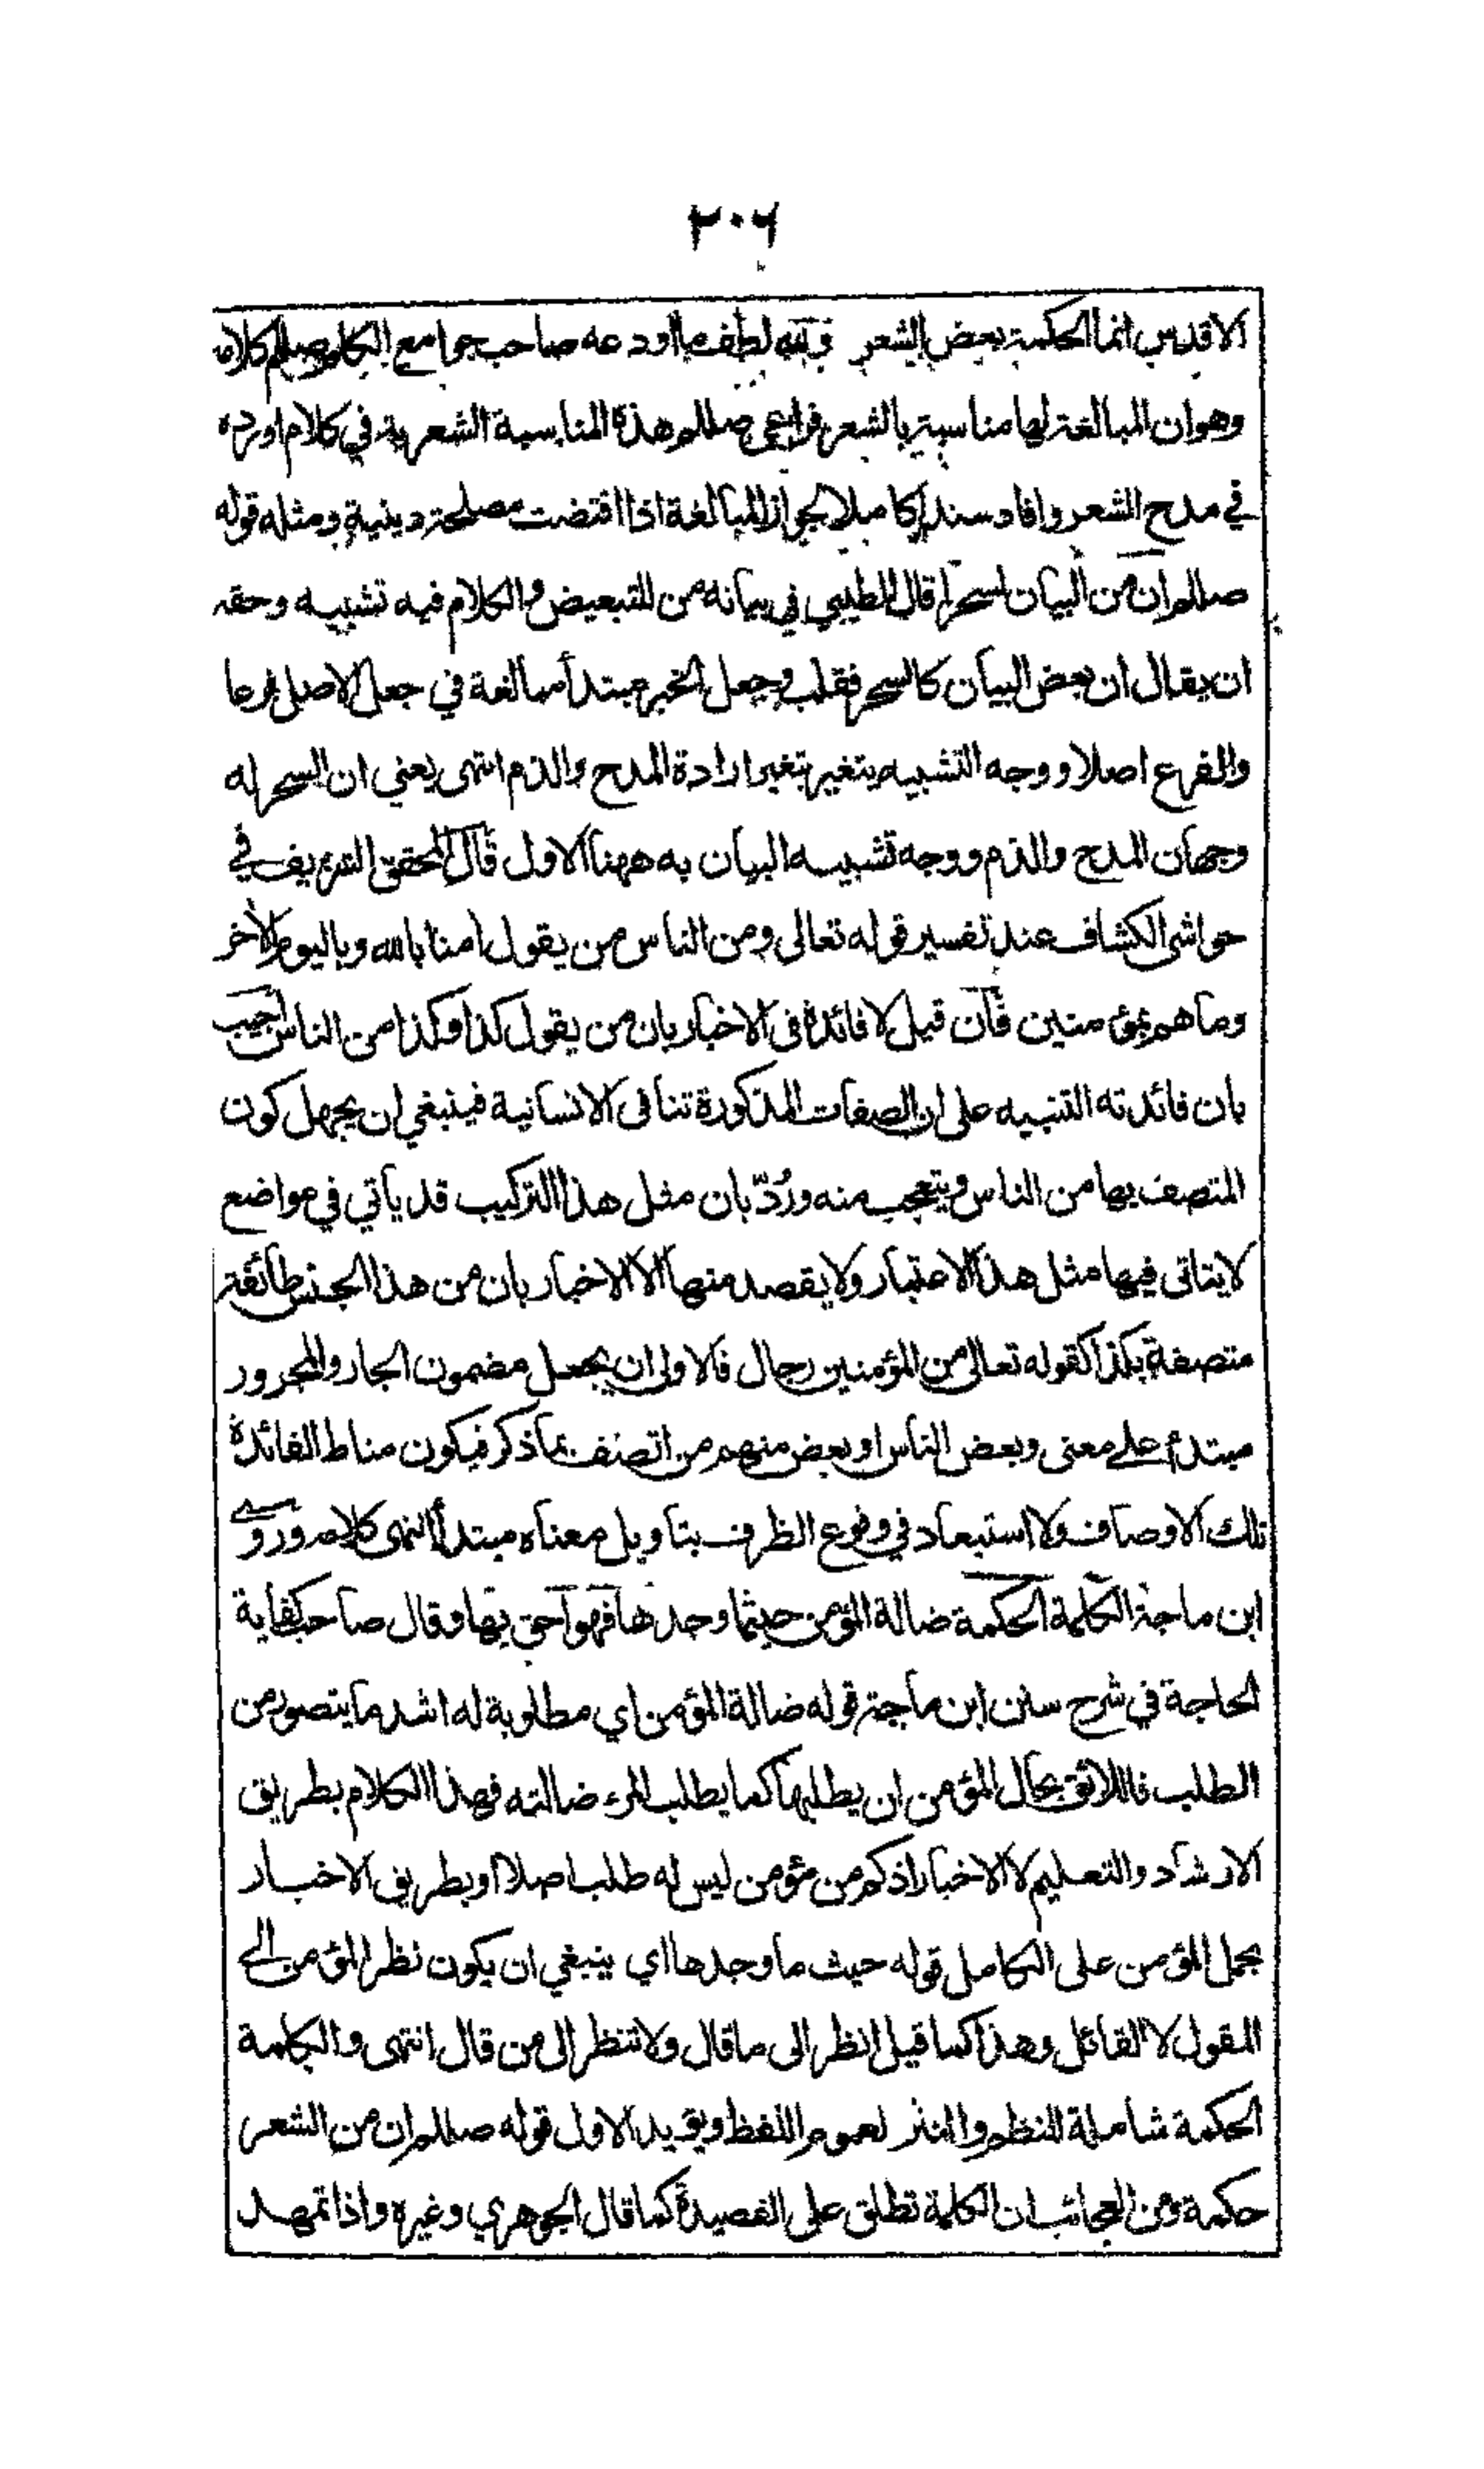 ٢٠٦
الاقدس انما الحكمة بعض الشعر ولله لطف ما اودعه صاحب جوامع الكلم صلعم كلامه
وهو ان المبالغة لها مناسبة بالشعر فراعى صللم هذه المناسبة الشعرية في كلام اورده
في مدح الشعر وافاد سندا كاملا لجواز المبالغة اذا اقتضت مصلحة دينية ومثله قوله
صللم ان من البيان لسحرا قال الطيبي في بيانه من للتبعيض والكلام فيه تشبيه وحقه
ان يقال ان بعض البيان كالسحر فقلب وجعل الخبر مبتدأ مبالغة في جعل الاصل فرعا
والفرع اصلا ووجه التشبيه يتغير بتغير ارادة المدح والذم انتهى يعني ان السحر له
وجهان المدح والذم ووجه تشبيه البيان به ههنا الاول قال المحقق الشريف في
حواشي الكشاف عند تفسير قوله تعالى ومن الناس من يقول امنا بالله وباليوم الأخر
وما هم بمؤمنين فان قيل لا فائدة في الاخبار بان من يقول كذا وكذا من الناس اجيب
بان فائدته التنبيه على ان الصفات المذكورة تنافى الانسانية فينبغي ان يجهل كون
المتصف بها من الناس ويتعجب منه ورُدّ بان مثل هذا التركيب قد يأتي في مواضع
لا يتاتى فيها مثل هذا الاعتبار ولا يقصد منها الا الاخبار بان من هذا الجنس طائفة
متصفة بكذا كقوله تعالى من المؤمنين رجال فالاولى ان يجعل مضمون الجار والمجرور
مبتدء على معنى وبعض الناس او بعض منهم من اتصف بما ذكر فيكون مناط الفائدة
تلك الاوصاف ولا استبعاد في وقوع الظرف بتاويل معناه مبتدأ انتهى كلامه وروى
ابن ماجة الكلمة الحكمة ضالة المؤمن حيثما وجدها فهو احق بها وقال صاحب كفاية
الحاجة في شرح سنن ابن ماجة قوله ضالة المؤمن اي مطلوبة له اشد ما يتصور من
الطلب فاللائق بحال المؤمن ان يطلبها كما يطلب المرء ضالته فهذا الكلام بطريق
الارشاد والتعليم لا الاخبار اذ كم من مؤمن ليس له طلب اصلا او بطريق الاخبار
بحمل المؤمن على الكامل قوله حيث ما وجدها اي ينبغي ان يكون نظر المؤمن الى
المقول لا القائل وهذا كما قيل انظر الى ما قال ولا تنظر الى من قال انتهى والكلمة
الحكمة شاملة للنظم والنثر لعموم اللفظ ويؤيد الاول قوله صللم ان من الشعر
حكمة ومن العجائب ان الكلمة تطلق على القصيدة كما قال الجوهري وغيره واذا تمهد